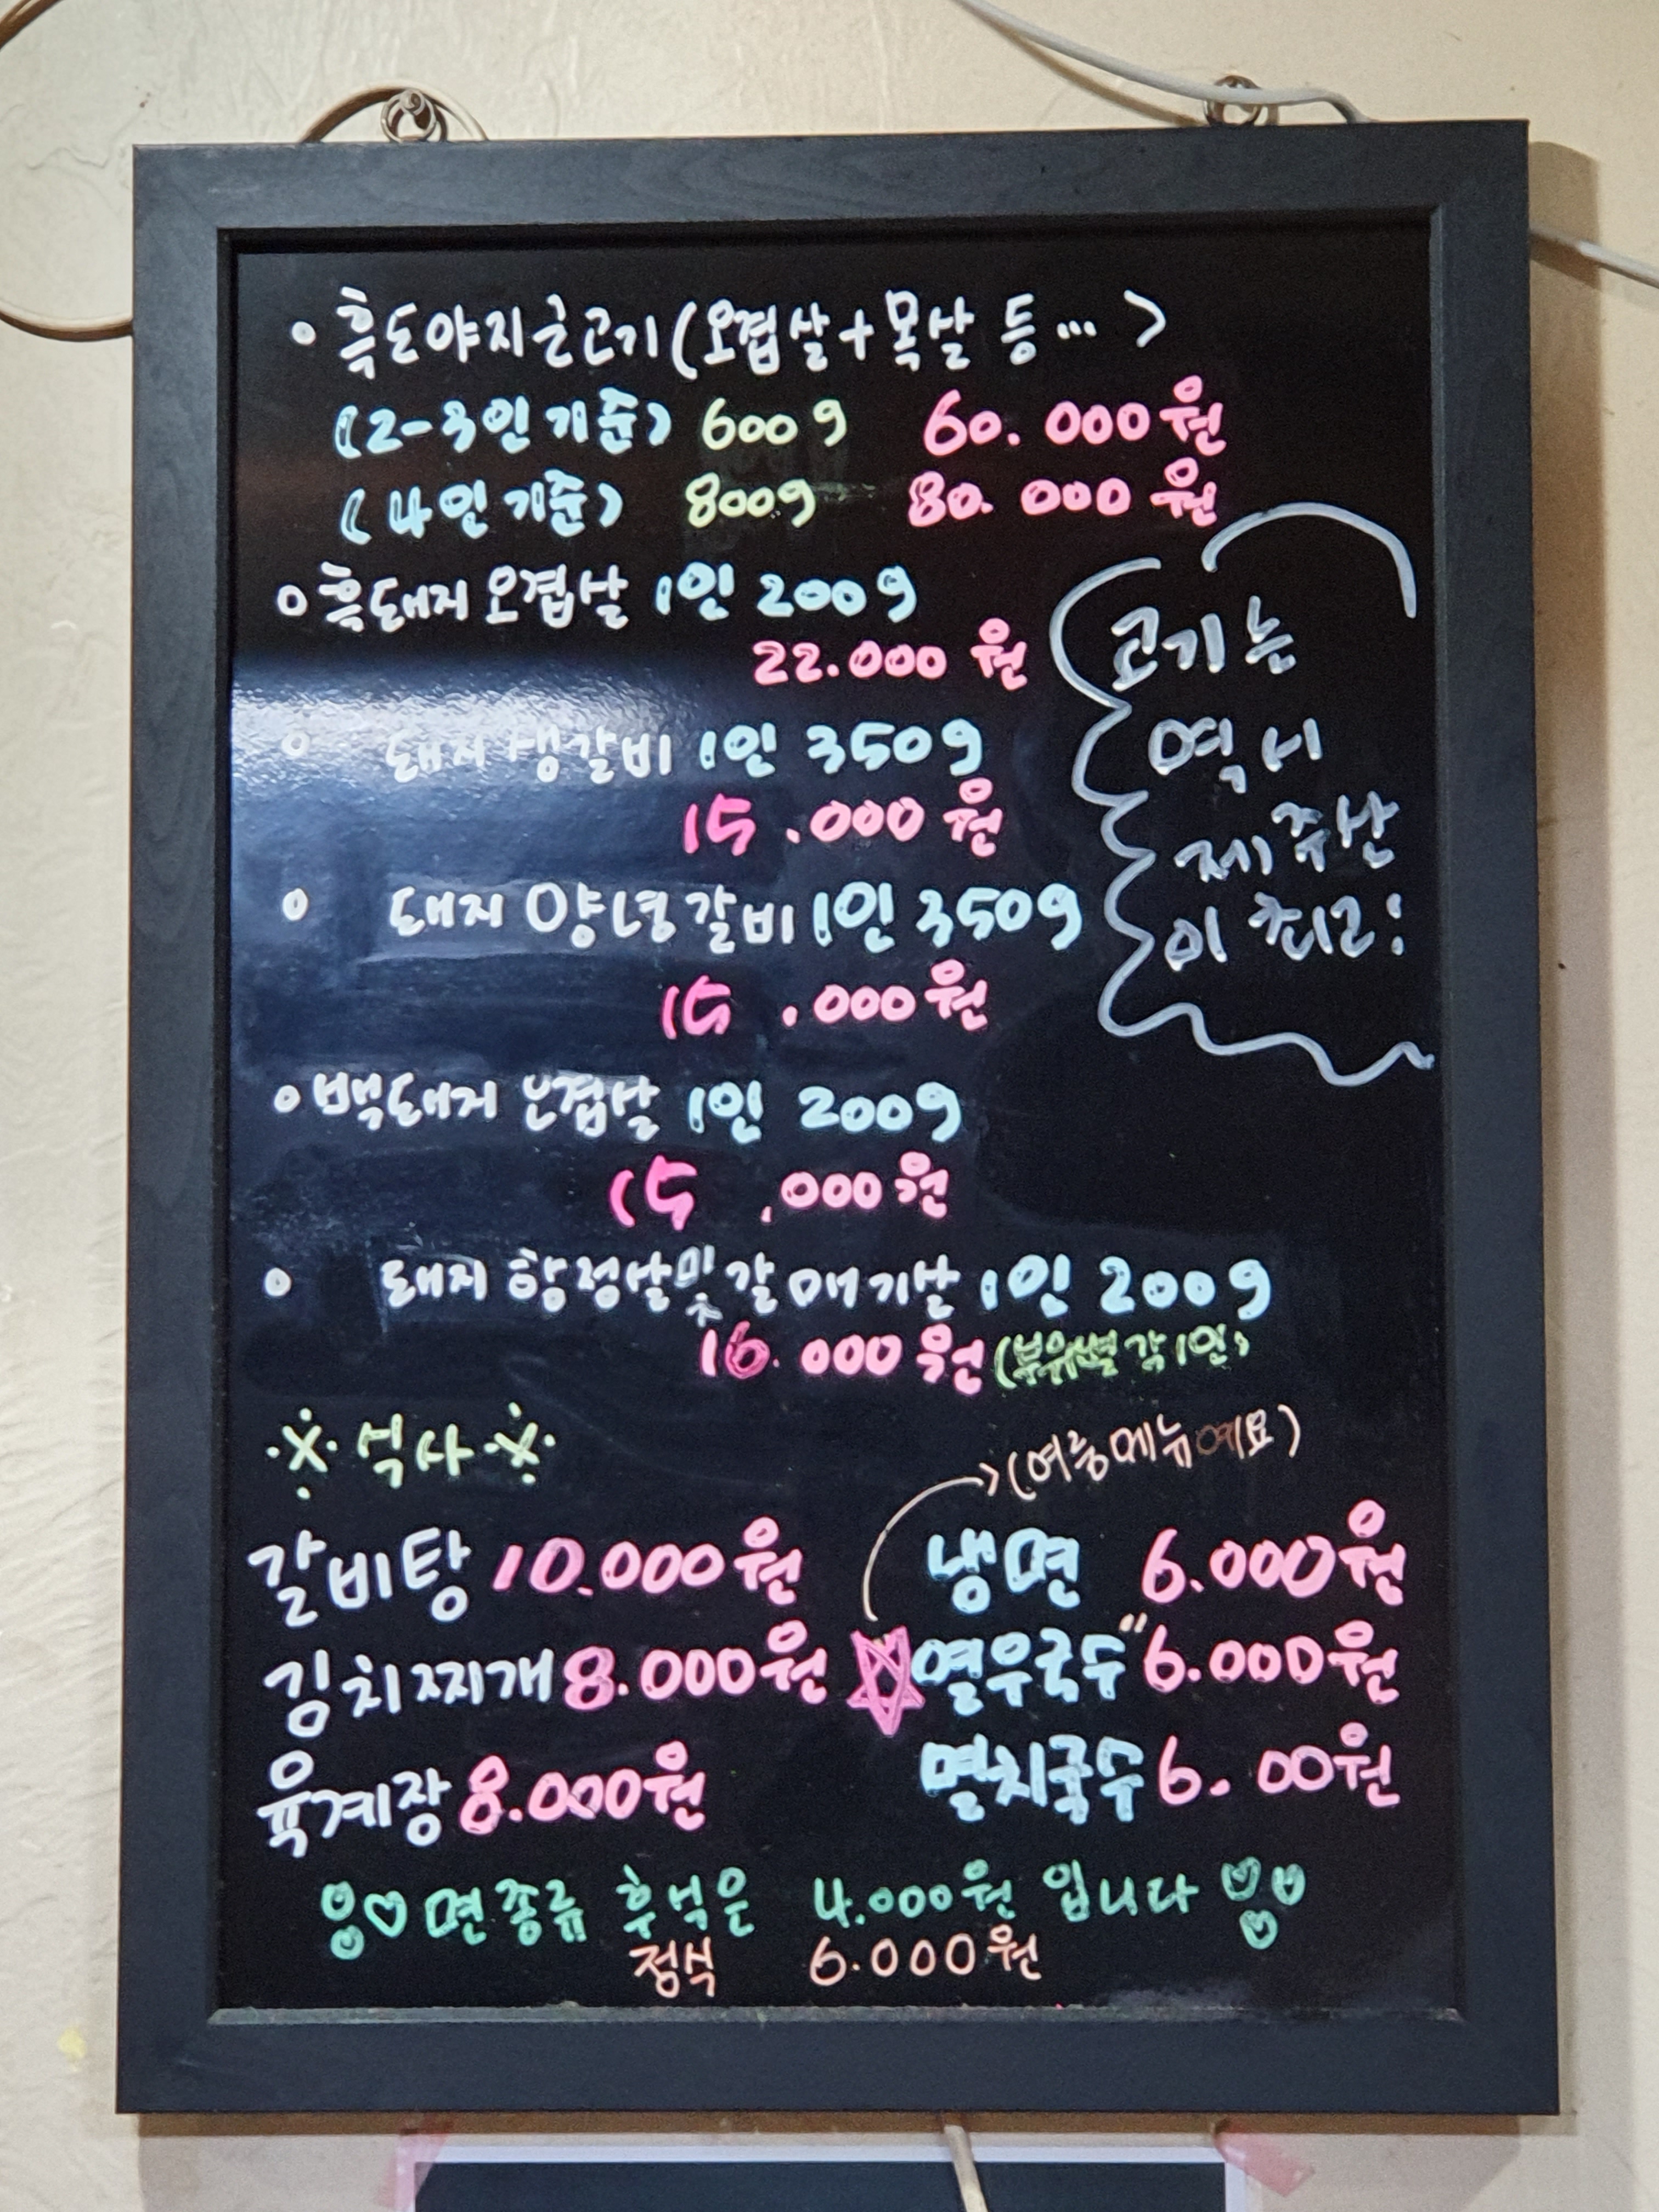 • 흑도야지근고기(오겹살+목살 등...)
(2-3인 기준) 600g 60.000원
(4인 기준) 800g 80.000원
o 흑돼지 오겹살 1인 200g
22.000 원
o 돼지생갈비 1인 350g
15.000원
o 돼지양념갈비 1인 350g
15.000원
o 백돼지 오겹살 1인 200g
15.000원
o 돼지 항정살및갈매기살 1인 200g
16.000원(부위별 각1인)
고기는
역시
제주산
이 최고!
※식사※
→(여름메뉴예요)
갈비탕 10.000원
김치찌개 8.000원
육계장 8.000원
냉면 6.000원
☆열우국수" 6.000원
멸치국수 6.00원
♡면종류 후식은 4.000원 입니다♡
정식 6.000원